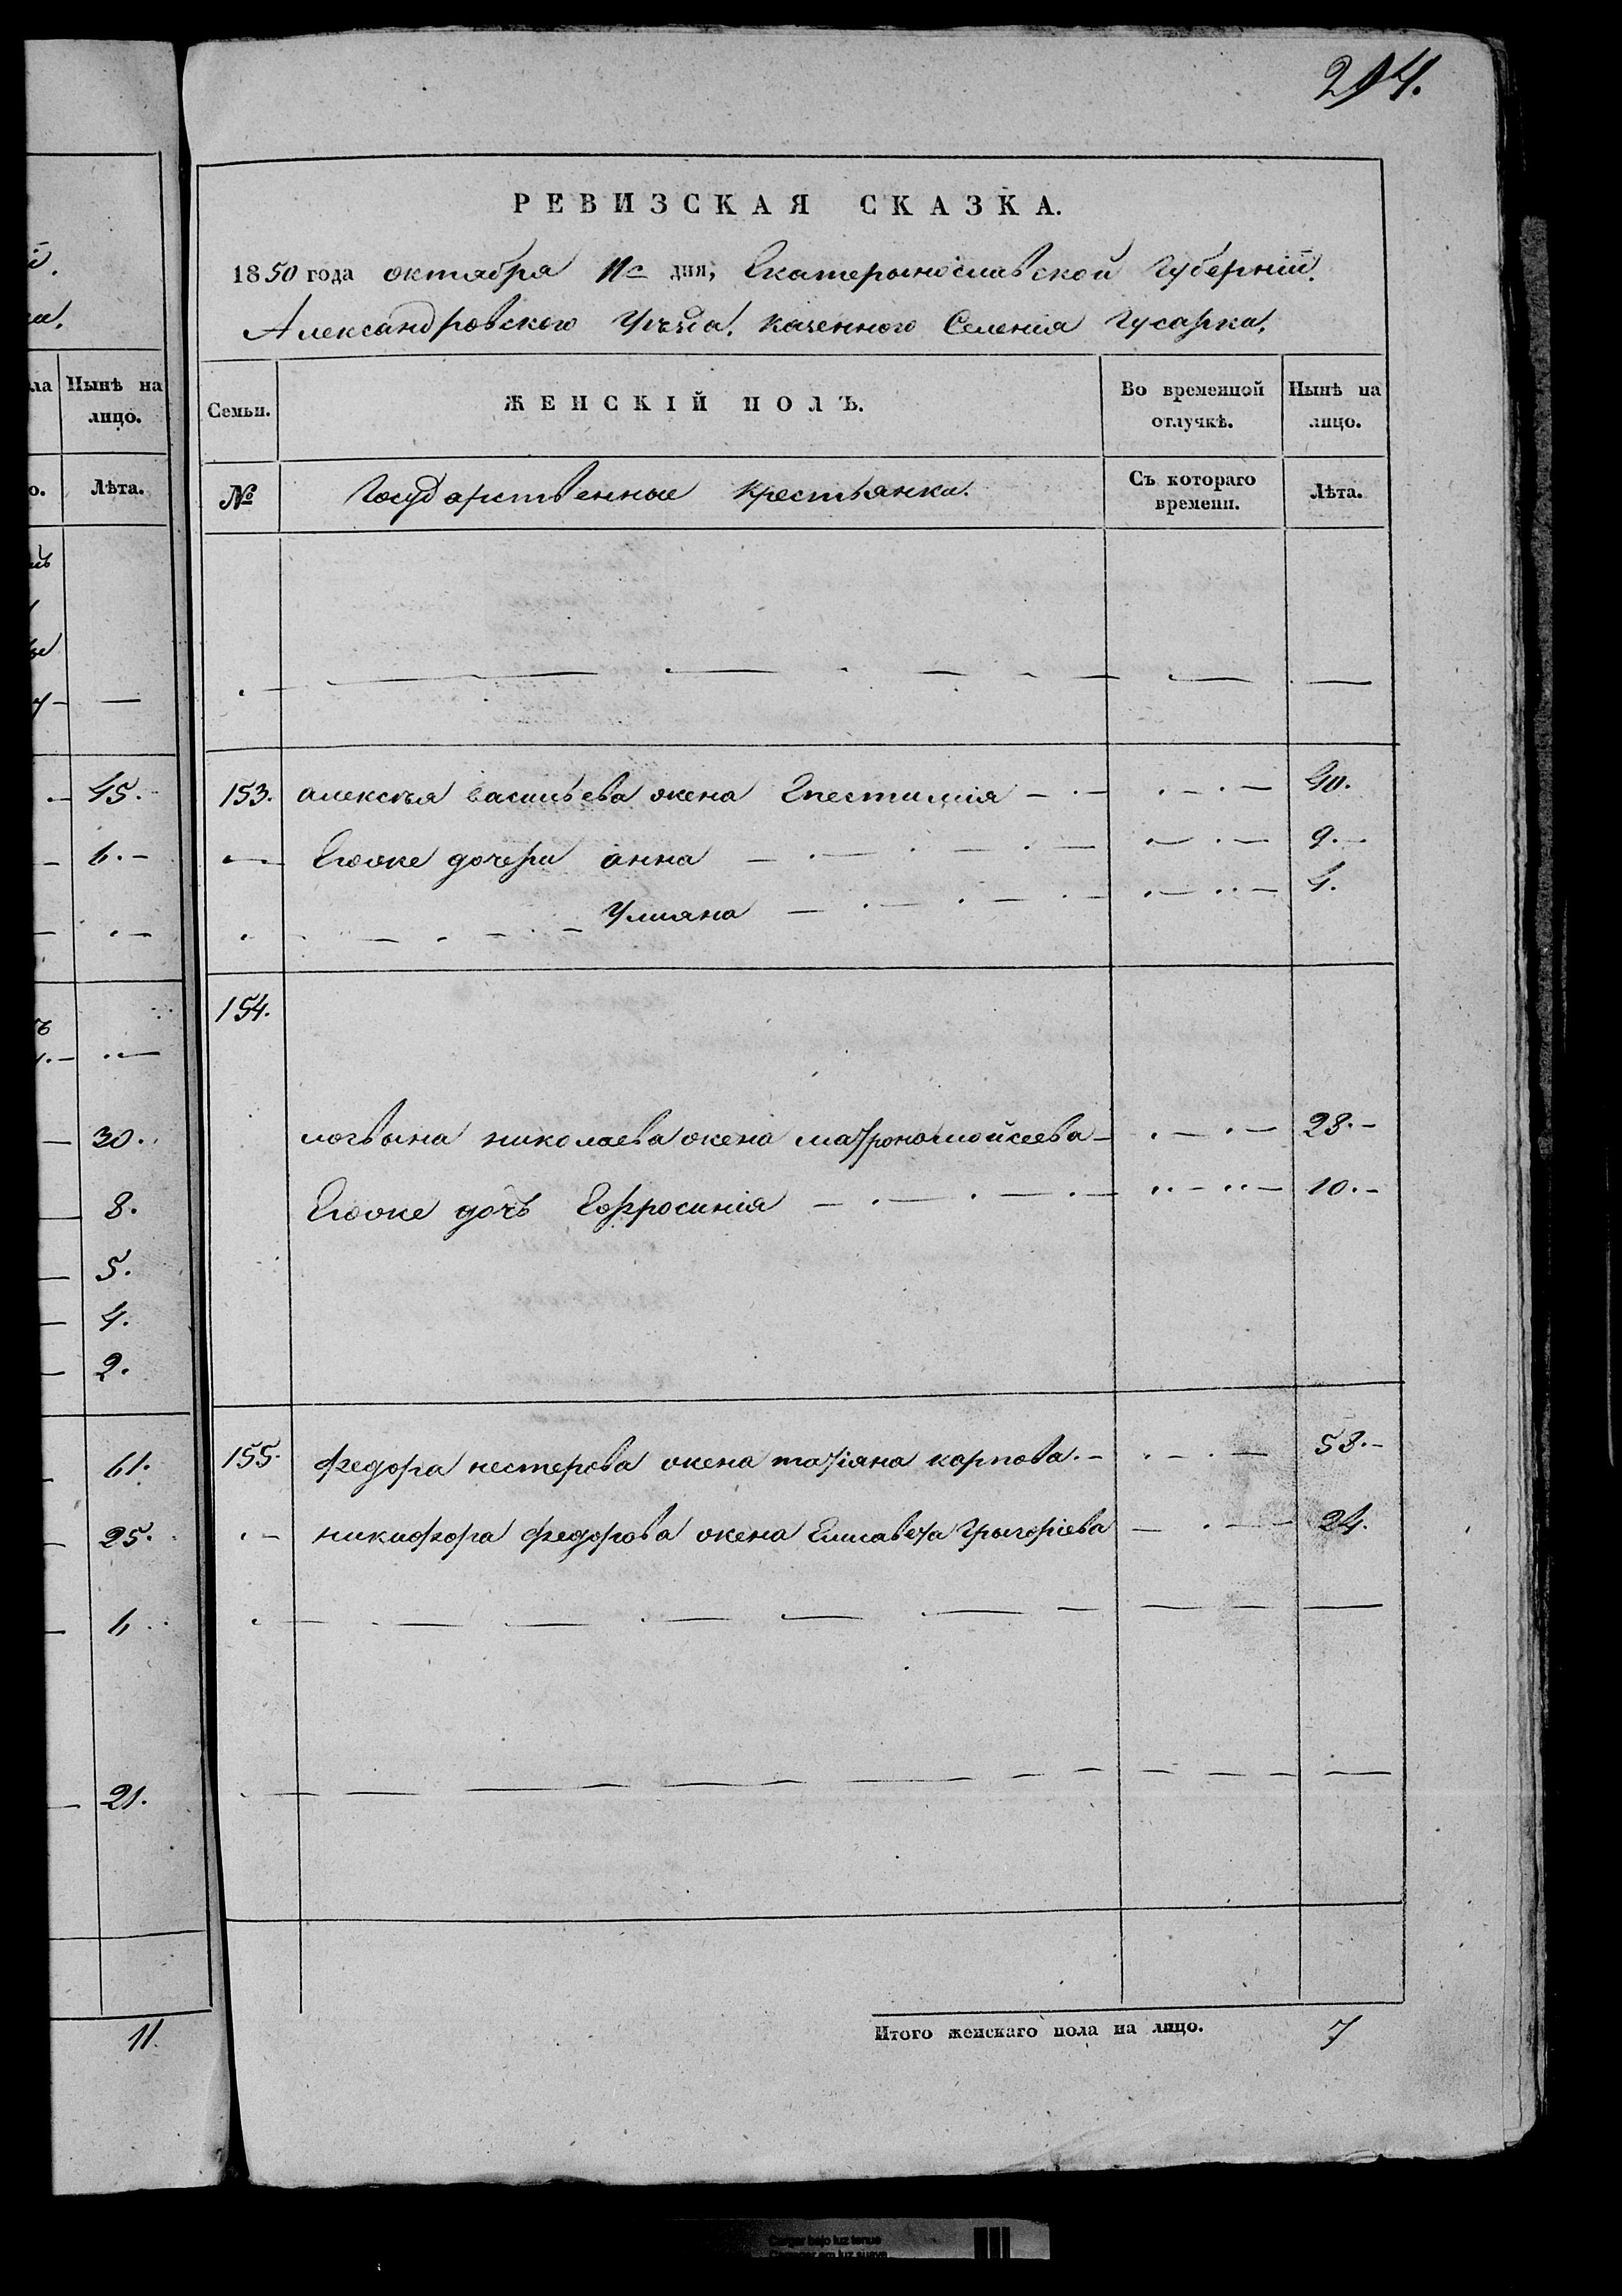 214.
РЕВИЗСКАЯ СКАЗКА.
1850 года октября 11го дня, Екатеринославской Губерніи.
Александровского Уезда, казенного Селенія Гусарка,
Семьи. ЖЕНСКІЙ ПОЛЪ. Во временной отлучкѣ. Нынѣ на лицо.
№ Государственные крестьянки. Съ котораго времени. Лѣта.
153. алексѣя васильева жена 40.
Егоже дочери анна 9.
Улияна 4.
154.
логвина николаева жена матрона мойсеева 28.
Егоже дочь Ефросинія 10.
155. федора нестерова жена татіяна карпова. 53.
никифора федорова жена Елисавета Григоріева 24.
Итого женскаго пола на лицо. 7
Нынѣ на лицо.
Лѣта.
45.
6.
30.
8.
5.
4.
2.
61.
25.
6
21.
11.